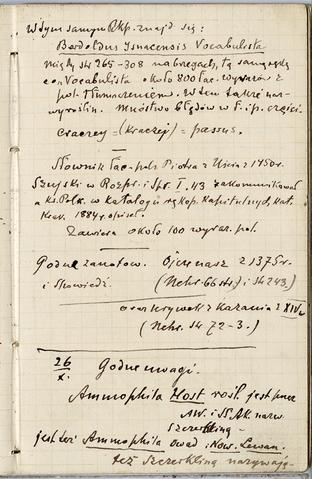 W tym samym Rkp. znajd się:
Bardoldus Isnacensis Vocabulista
między str 265-308 na brzegach, tą samą ręką
co Vocabulista około 800 łac. wyrazów z
pol. tłumaczeniem. W tem także naz-
wy roślin. Mnóstwo błędów w ł. i p. części.
craczey = (kraczej) = passus.
Słownik łac-pols Piotra z Uścia z 1450 r.
Szujski w Rozpr. i Spr. I. 43 zakomunikował
a ks. Polk. w Katalogu rękop. Kapitulnych, Kat.
Krak. 1884 r. opisał.
Zawiera około 100 wyraz. pol.
Godne zanotow. Ojcze nasz z 1375 r.
i Spowiedź. (Nehr. 66 str.) i str 243.)
oraz urywek z Kazania z XIV w
(Nehr. str 72-3.)
26
X. Godne uwagi.
Ammophila Host rośl. jest prze
AW. i SS. AK. nazw.
Szczerkliną -
jest też Ammophila owad i Now.
też Szczerkliną nazywają